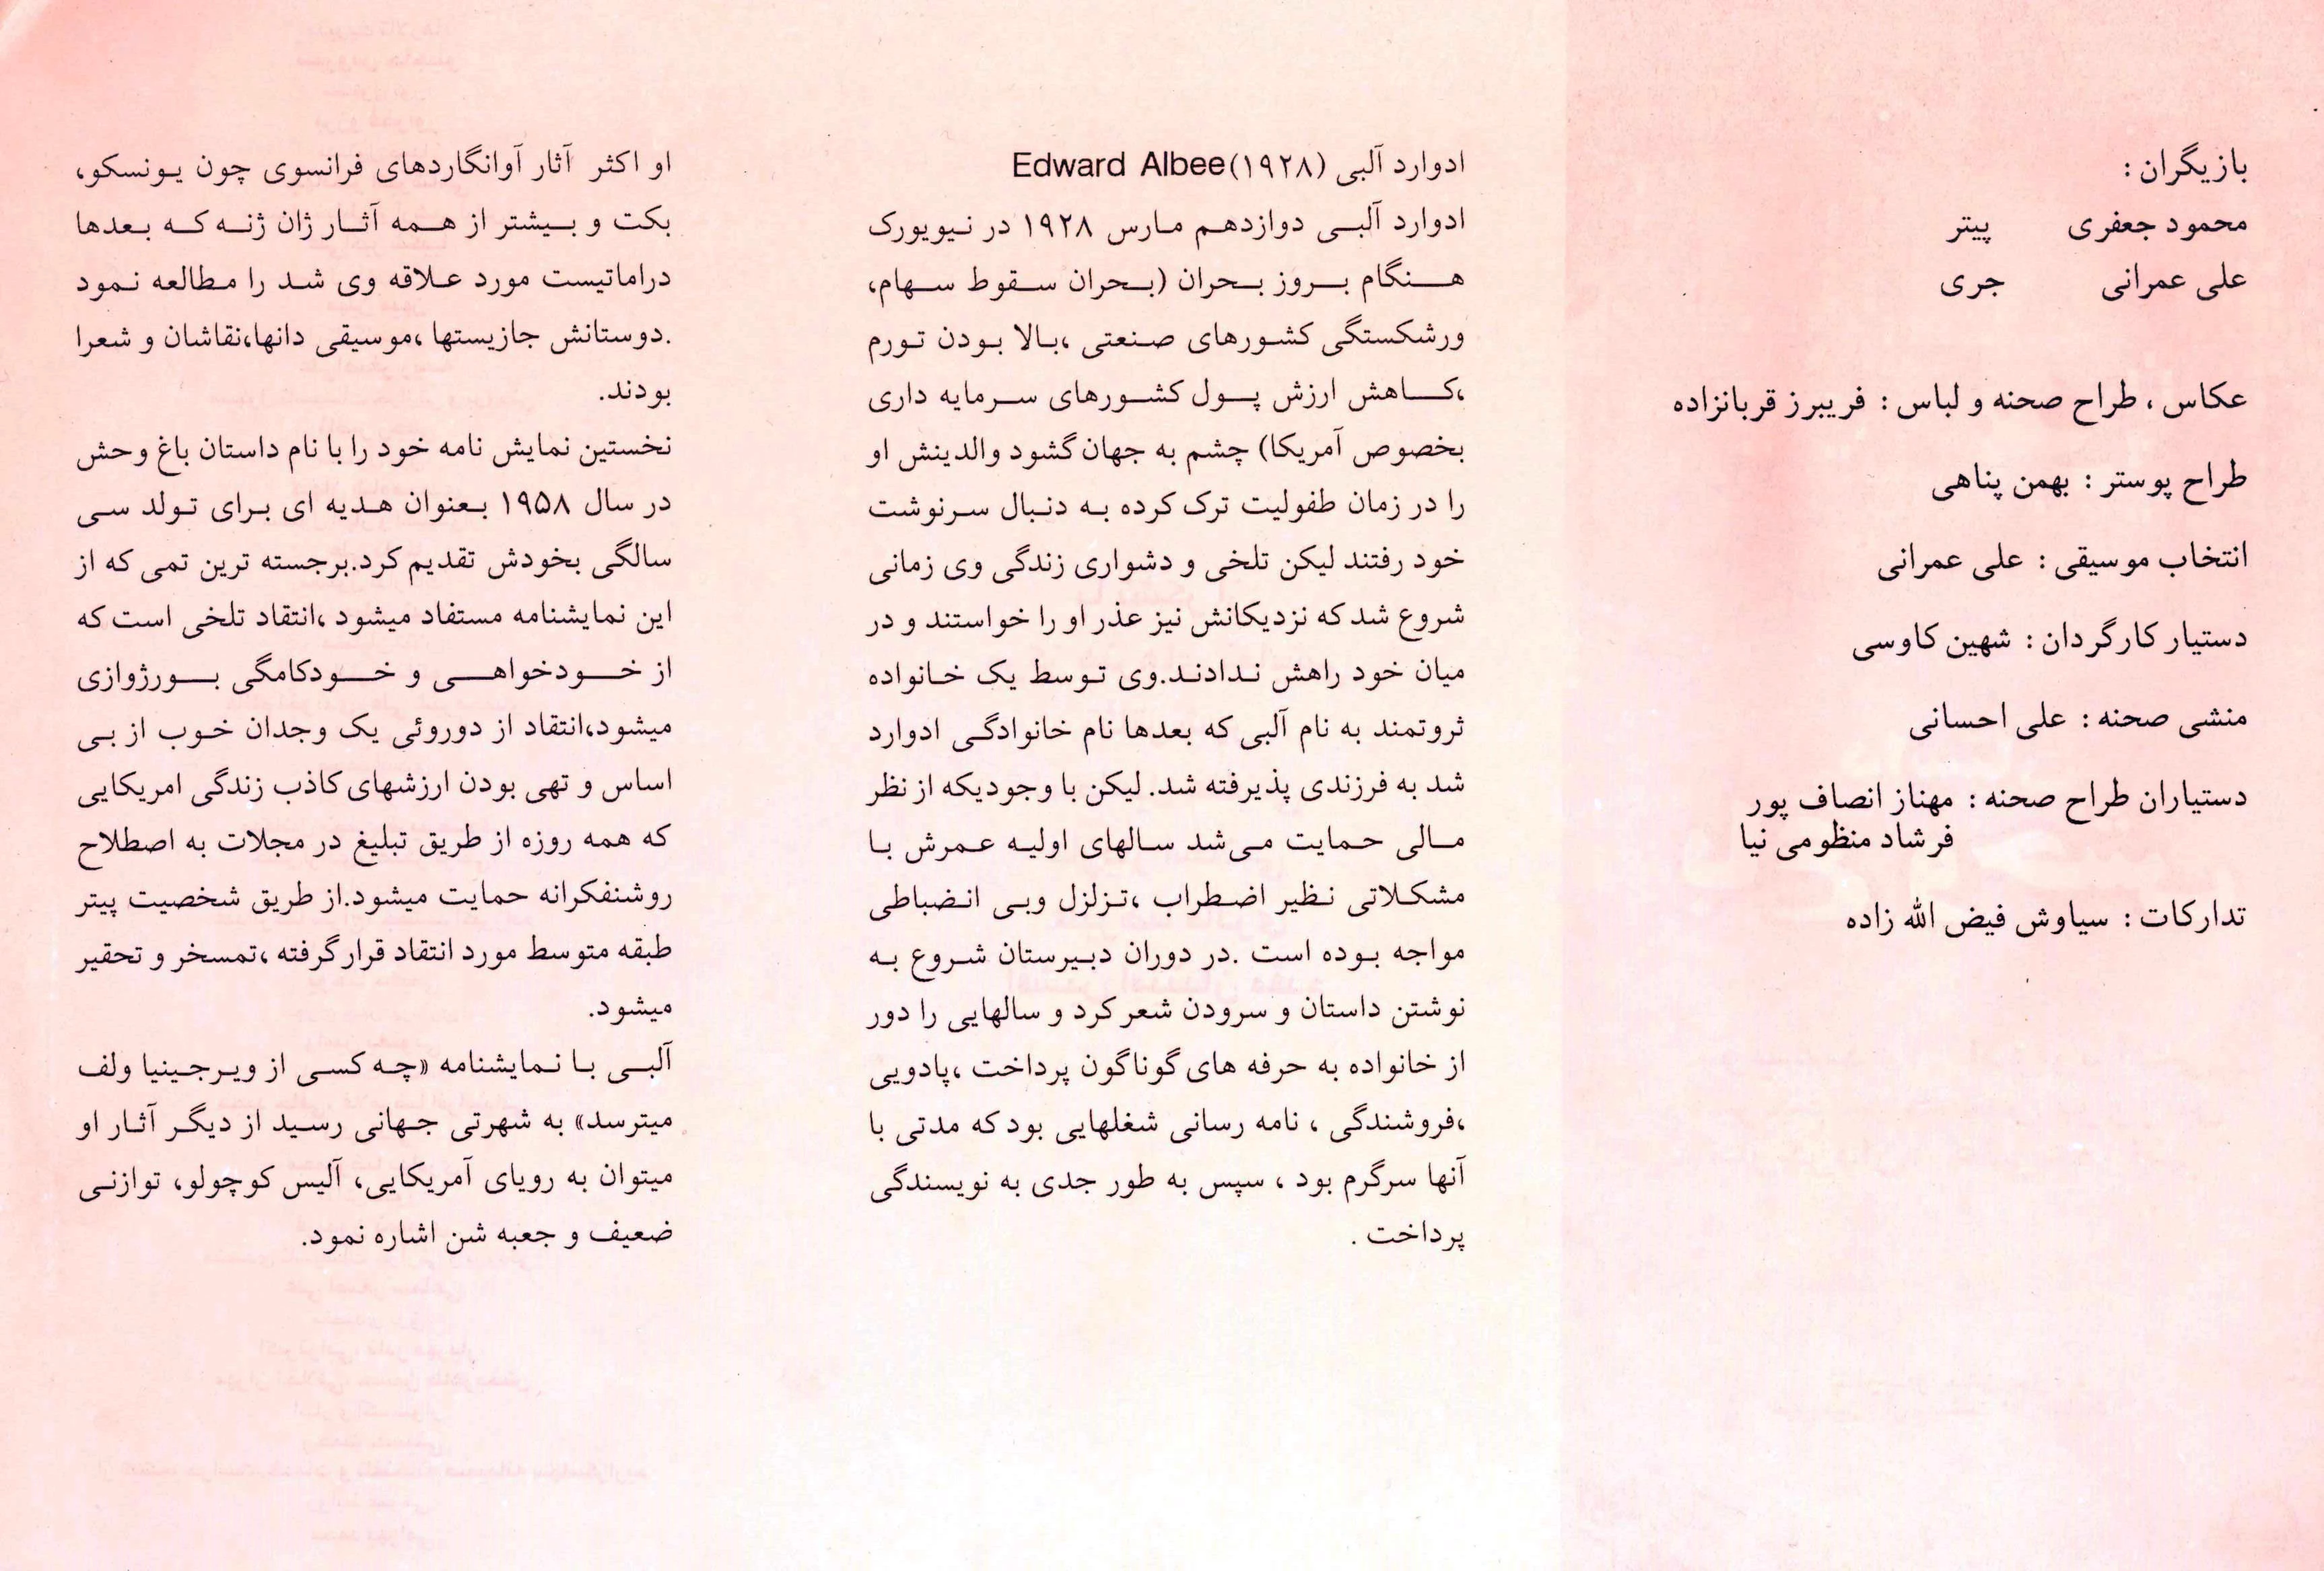 بازیگران :
محمود جعفری پیتر
علی عمرانی جری
عکاس ، طراح صحنه و لباس : فریبرز قربانزاده
طراح پوستر : بهمن پناهی
انتخاب موسیقی : علی عمرانی
دستیار کارگردان : شهین کاوسی
منشی صحنه : علی احسانی
دستیاران طراح صحنه : مهناز انصاف پور
فرشاد منظومی نیا
تدارکات : سیاوش فیض الله زاده
ادوارد آلبی (۱۹۲۸)Edward Albee
ادوارد آلبی دوازدهم مارس ۱۹۲۸ در نیویورک
هنگام بروز بحران (بحران سقوط سهام،
ورشکستگی کشورهای صنعتی ،بالا بودن تورم
،کاهش ارزش پول کشورهای سرمایه داری
بخصوص آمریکا) چشم به جهان گشود والدینش او
را در زمان طفولیت ترک کرده به دنبال سرنوشت
خود رفتند لیکن تلخی و دشواری زندگی وی زمانی
شروع شد که نزدیکانش نیز عذر او را خواستند و در
میان خود راهش ندادند.وی توسط یک خانواده
ثروتمند به نام آلبی که بعدها نام خانوادگی ادوارد
شد به فرزندی پذیرفته شد. لیکن با وجودیکه از نظر
مالی حمایت می‌شد سالهای اولیه عمرش با
مشکلاتی نظیر اضطراب ،تزلزل وبی انضباطی
مواجه بوده است .در دوران دبیرستان شروع به
نوشتن داستان و سرودن شعر کرد و سالهایی را دور
از خانواده به حرفه های گوناگون پرداخت ،پادویی
،فروشندگی ، نامه رسانی شغلهایی بود که مدتی با
آنها سرگرم بود ، سپس به طور جدی به نویسندگی
پرداخت .
او اکثر آثار آوانگاردهای فرانسوی چون یونسکو،
بکت و بیشتر از همه آثار ژان ژنه که بعدها
دراماتیست مورد علاقه وی شد را مطالعه نمود
.دوستانش جازیستها ،موسیقی دانها،نقاشان و شعرا
بودند.
نخستین نمایش نامه خود را با نام داستان باغ وحش
در سال ۱۹۵۸ بعنوان هدیه ای برای تولد سی
سالگی بخودش تقدیم کرد.برجسته ترین تمی که از
این نمایشنامه مستفاد میشود ،انتقاد تلخی است که
از خودخواهی و خودکامگی بورژوازی
میشود،انتقاد از دوروئی یک وجدان خوب از بی
اساس و تهی بودن ارزشهای کاذب زندگی امریکایی
که همه روزه از طریق تبلیغ در مجلات به اصطلاح
روشنفکرانه حمایت میشود.از طریق شخصیت پیتر
طبقه متوسط مورد انتقاد قرار گرفته ،تمسخر و تحقیر
میشود.
آلبی با نمایشنامه «چه کسی از ویرجینیا ولف
میترسد» به شهرتی جهانی رسید از دیگر آثار او
میتوان به رویای آمریکایی، آلیس کوچولو، توازنی
ضعیف و جعبه شن اشاره نمود.